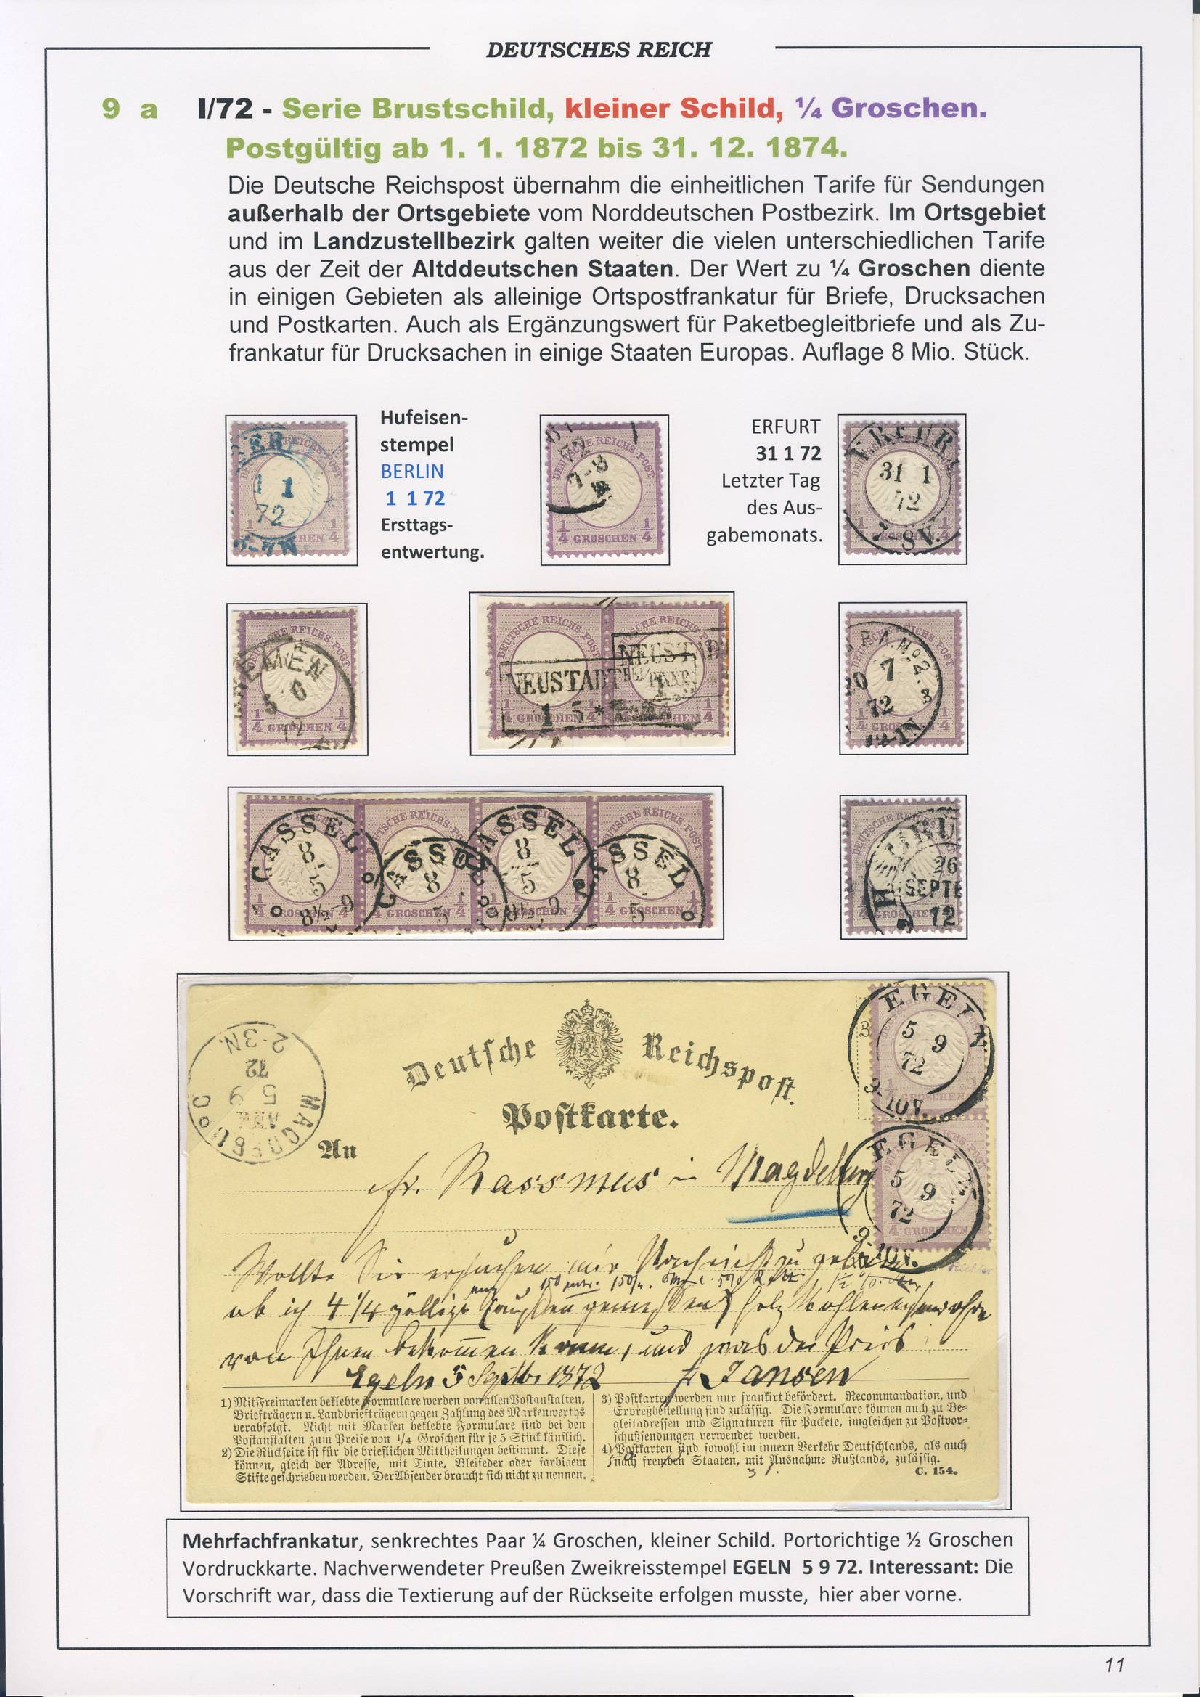 DEUTSCHES REICH
9 a I/72 - Serie Brustschild, kleiner Schild, ¼ Groschen.
Postgültig ab 1. 1. 1872 bis 31. 12. 1874.
Die Deutsche Reichspost übernahm die einheitlichen Tarife für Sendungen
außerhalb der Ortsgebiete vom Norddeutschen Postbezirk. Im Ortsgebiet
und im Landzustellbezirk galten weiter die vielen unterschiedlichen Tarife
aus der Zeit der Altddeutschen Staaten. Der Wert zu ¼ Groschen diente
in einigen Gebieten als alleinige Ortspostfrankatur für Briefe, Drucksachen
und Postkarten. Auch als Ergänzungswert für Paketbegleitbriefe und als Zu-
frankatur für Drucksachen in einige Staaten Europas. Auflage 8 Mio. Stück.
Hufeisen-
stempel
BERLIN
1 1 72
Ersttags-
entwertung.
ERFURT
31 1 72
Letzter Tag
des Aus-
gabemonats.
1 1
72
DEUTSCHE REICHS-POST
¼ GROSCHEN ¼
31 1
72
EMEN
NEUSTADT
CASSEL
8
5
CASSEL
8
5
26
SEPTE
72
Deutsche Reichspost.
Postkarte.
An
MAGDEBURG
5 9
72
2-3N.
EGELN
5 9
72
9-10V.
EGELN
5 9
72
9-10V.
Fr. Rassmus in Magdeburg
Wollte Sie ersuchen mir Nachricht zu geben
ob ich 4 1/4 zöllige
von Ihnen bekommen kann, und was der Preis
Egeln 5 Septbr 1872 Jansen
1) Mit Freimarken beklebte Formulare werden von allen Postanstalten,
Briefträgern u. Landbriefträgern gegen Zahlung des Markenwerths
verabfolgt. Nicht mit Marken beklebte Formulare sind bei den
Postanstalten zum Preise von ¼ Groschen für je 5 Stück käuflich.
2) Die Rückseite ist für die brieflichen Mittheilungen bestimmt. Diese
können, gleich der Adresse, mit Tinte, Bleifeder oder farbigem
Stifte geschrieben werden. Der Absender braucht sich nicht zu nennen.
3) Postkarten werden nur frankirt befördert. Recommandation, und
Expreßbestellung sind zulässig. Die Formulare können auch zu Be-
gleitadressen und Signaturen für Packete, imgleichen zu Postvor-
schußsendungen verwendet werden.
4) Postkarten sind sowohl im innern Verkehr Deutschlands, als auch
nach fremden Staaten, mit Ausnahme Rußlands, zulässig.
C. 154.
Mehrfachfrankatur, senkrechtes Paar ¼ Groschen, kleiner Schild. Portorichtige ½ Groschen
Vordruckkarte. Nachverwendeter Preußen Zweikreisstempel EGELN 5 9 72. Interessant: Die
Vorschrift war, dass die Textierung auf der Rückseite erfolgen musste, hier aber vorne.
11